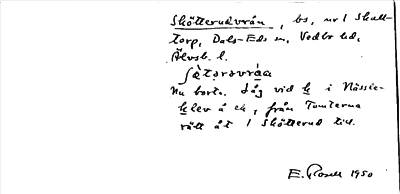 Skötterudvrån, bs, nr 1 Skall-
torp, Dals-Eds sn, Vedbo hd,
Älvsb. l.
ʃə̀tərəvrá̱a
Nu borta. Låg vid k i Nässle-
klev å ek, från Tomterna
rätt åt 1 Skötterud till.
E. Rosell 1950